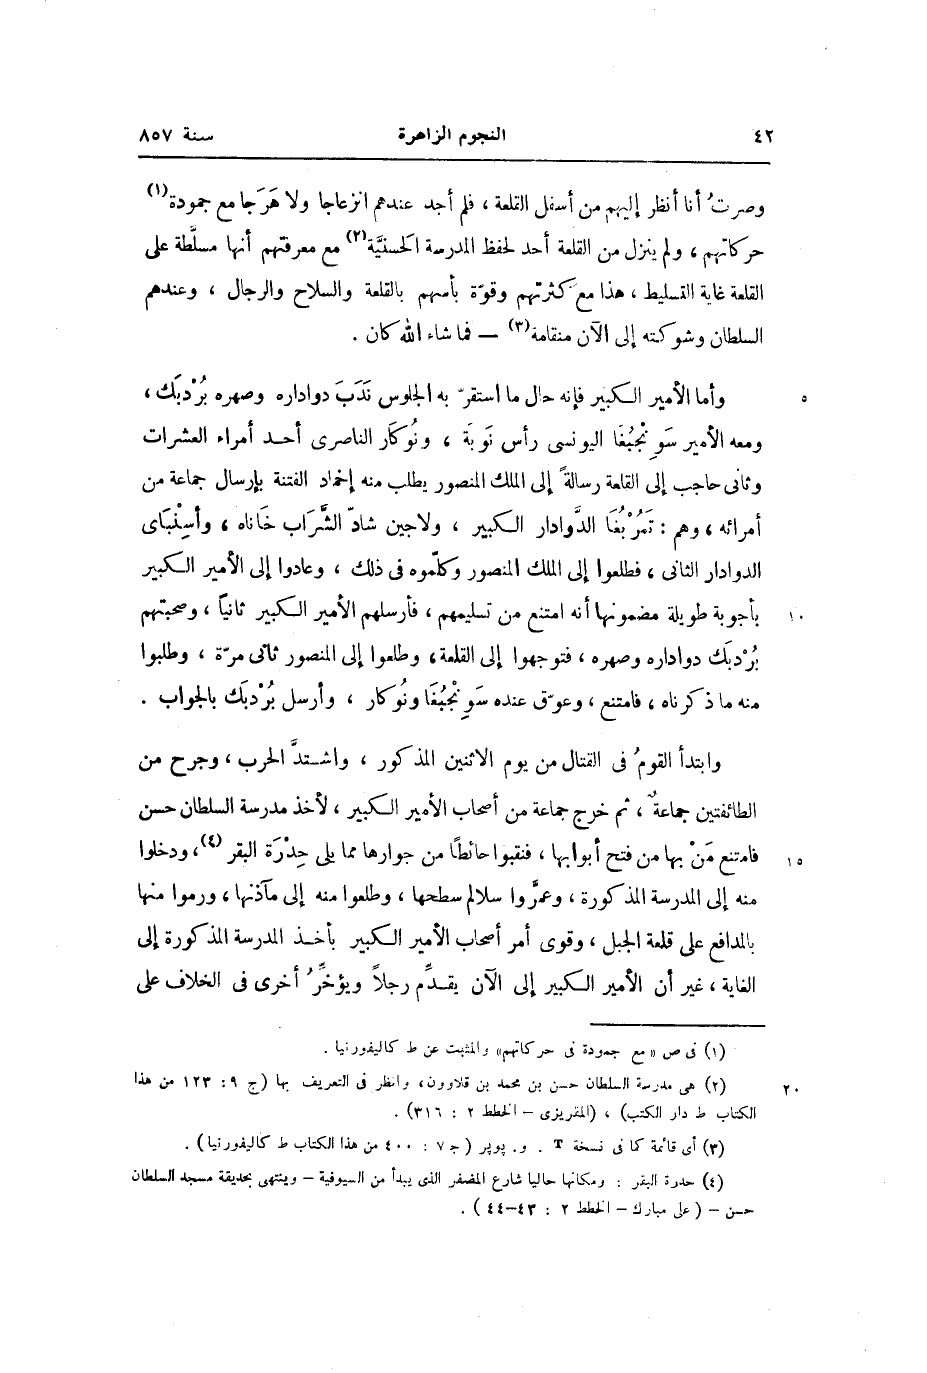 ٤٢ النجوم الزاهرة سنة ٨٥٧
وصرتُ أنا أنظر إليهم من أسفل القلعة ، فلم أجد عندهم انزعاجا ولا هَرَجا مع جمودة(١)
حركاتهم ، ولم ينزل من القلعة أحد لحفظ المدرسة الحَسنيَّة(٢) مع معرفتهم أنها مسلَّطة على
القلعة غاية التسليط ، هذا مع كثرتهم وقوّة بأسهم بالقلعة والسلاح والرجال ، وعندهم
السلطان وشوكته إلى الآن منقامة(٣) — فما شاء الله كان .
وأما الأمير الكبير فإنه حال ما استقرّ به الجلوس نَدَبَ دواداره وصهره بُرْدبَك ، ٥
ومعه الأمير سَونْجُبُغَا اليونسى رأس نَوبَة ، ونُوكَار الناصرى أحد أمراء العشرات
وثانى حاجب إلى القلعة رسالةً إلى الملك المنصور يطلب منه إخماد الفتنة بإرسال جماعة من
أمرائه ، وهم : تَمُرْبُغَا الدَّوادار الكبير ، ولاجين شادّ الشَّرَاب خَاناه ، وأسِنْبَاى
الدوادار الثانى ، فطلعوا إلى الملك المنصور وكلّموه فى ذلك ، وعادوا إلى الأمير الكبير
بأجوبة طويلة مضمونها أنه امتنع من تسليمهم ، فأرسلهم الأمير الكبير ثانياً ، وصحبتهم ١٠
بُرْدبَك دواداره وصهره ، فتوجهوا إلى القلعة ، وطلعوا إلى المنصور ثانى مرّة ، وطلبوا
منه ما ذكرناه ، فامتنع ، وعوّق عنده سَونْجُبُغَا ونُوكار ، وأرسل بُرْدبَك بالجواب .
وابتدأ القومُ فى القتال من يوم الاثنين المذكور ، واشتدَّ الحرب ، وجرح من
الطائفتين جماعةٌ ، ثم خرج جماعة من أصحاب الأمير الكبير ، لأخذ مدرسة السلطان حسن
فامتنع مَنْ بها من فتح أبوابها ، فنقبوا حائطًا من جوارها مما يلى حِدْرَة البقر(٤) ، ودخلوا ١٥
منه إلى المدرسة المذكورة ، وعمَّروا سلالم سطحها ، وطلعوا منه إلى مآذنها ، ورموا منها
بالمدافع على قلعة الجبل ، وقوى أمر أصحاب الأمير الكبير بأخذ المدرسة المذكورة إلى
الغاية ، غير أن الأمير الكبير إلى الآن يقدِّم رجلاً ويؤخِّرُ أخرى فى الخلاف على
(١) فى ص «مع جمودة فى حركاتهم» والمثبت عن ط كاليفورنيا .
(٢) هى مدرسة السلطان حسن بن محمد بن قلاوون، وانظر فى التعريف بها (ج ٩: ١٢٣ من هذا ٢٠
الكتاب ط دار الكتب) ، (المقريزى – الخطط ٢ : ٣١٦) .
(٣) أى قائمة كما فى نسخة T . و. پوپر ( ج٧ : ٤٠٠ من هذا الكتاب ط كاليفورنيا) .
(٤) حدرة البقر : ومكانها حاليا شارع المضفر الذى يبدأ من السيوفية – وينتهى بحديقة مسجد السلطان
حسن – ( على مبارك – الخطط ٢ : ٤٣–٤٤ ) .